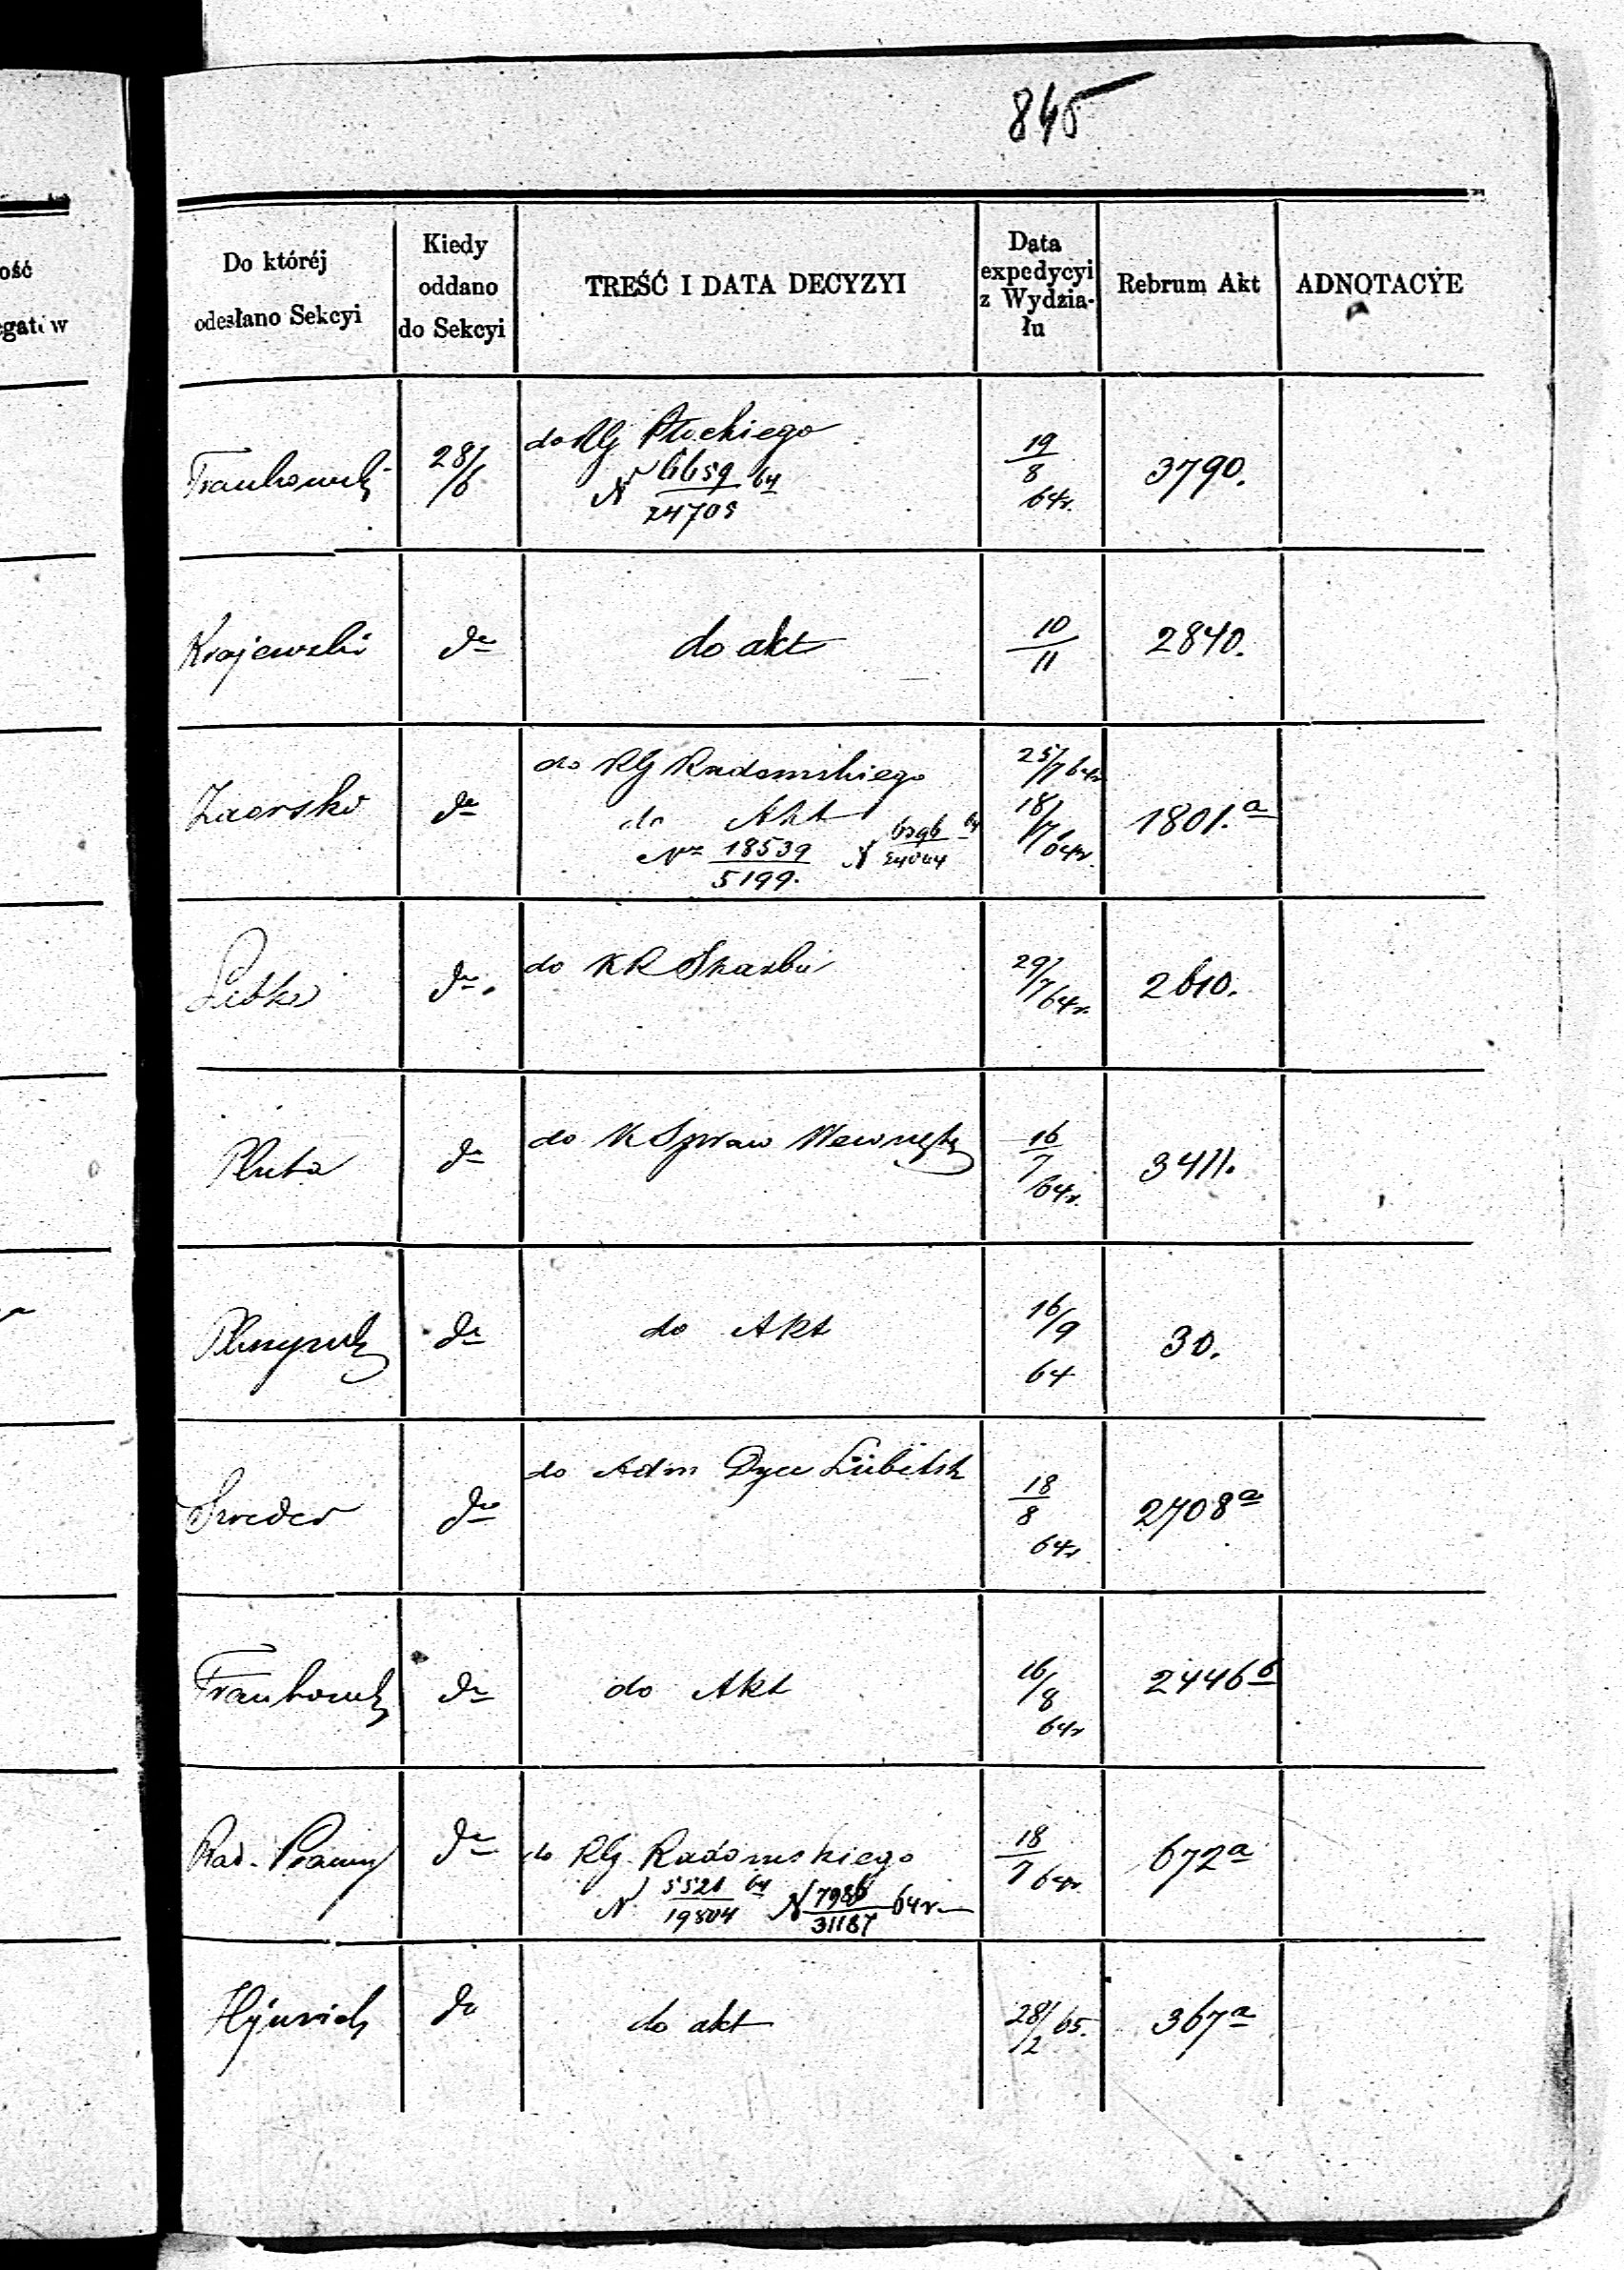 845
ość
egatów
Do któréj
odesłano Sekcyi
Kiedy
oddano
do Sekcyi
TREŚĆ I DATA DECYZYI
Data
expedycyi
z Wydzia-
łu
Rebrum Akt
ADNOTACYE
28/6
do RG Płockiego
N 6659/24705 64
19/8
64r.
3790.
Krajewski
do
do akt
10/11
2840.
Zaorski
do
do RG Radomskiego
do Akt
Nr 18539/5199.
25/7 64r
18/7 64r.
1801.a
do
do KR Skarbu
29/7 64r.
2610.
Pluta
do
do K Spraw Wewnętz
16/7
64r.
3411.
do
do Akt
16/9
64
30.
Szreder
do
do Adm Dyec Lubelsk
18/8
64r
2708a
do
do Akt
16/8
64r
2446b
Rad. Prawny
do
do RG Radomskiego
N 5521/19804 64 N 7986/31187 64r
18/7 64r.
672a
do
do akt
28/2 65.
367a